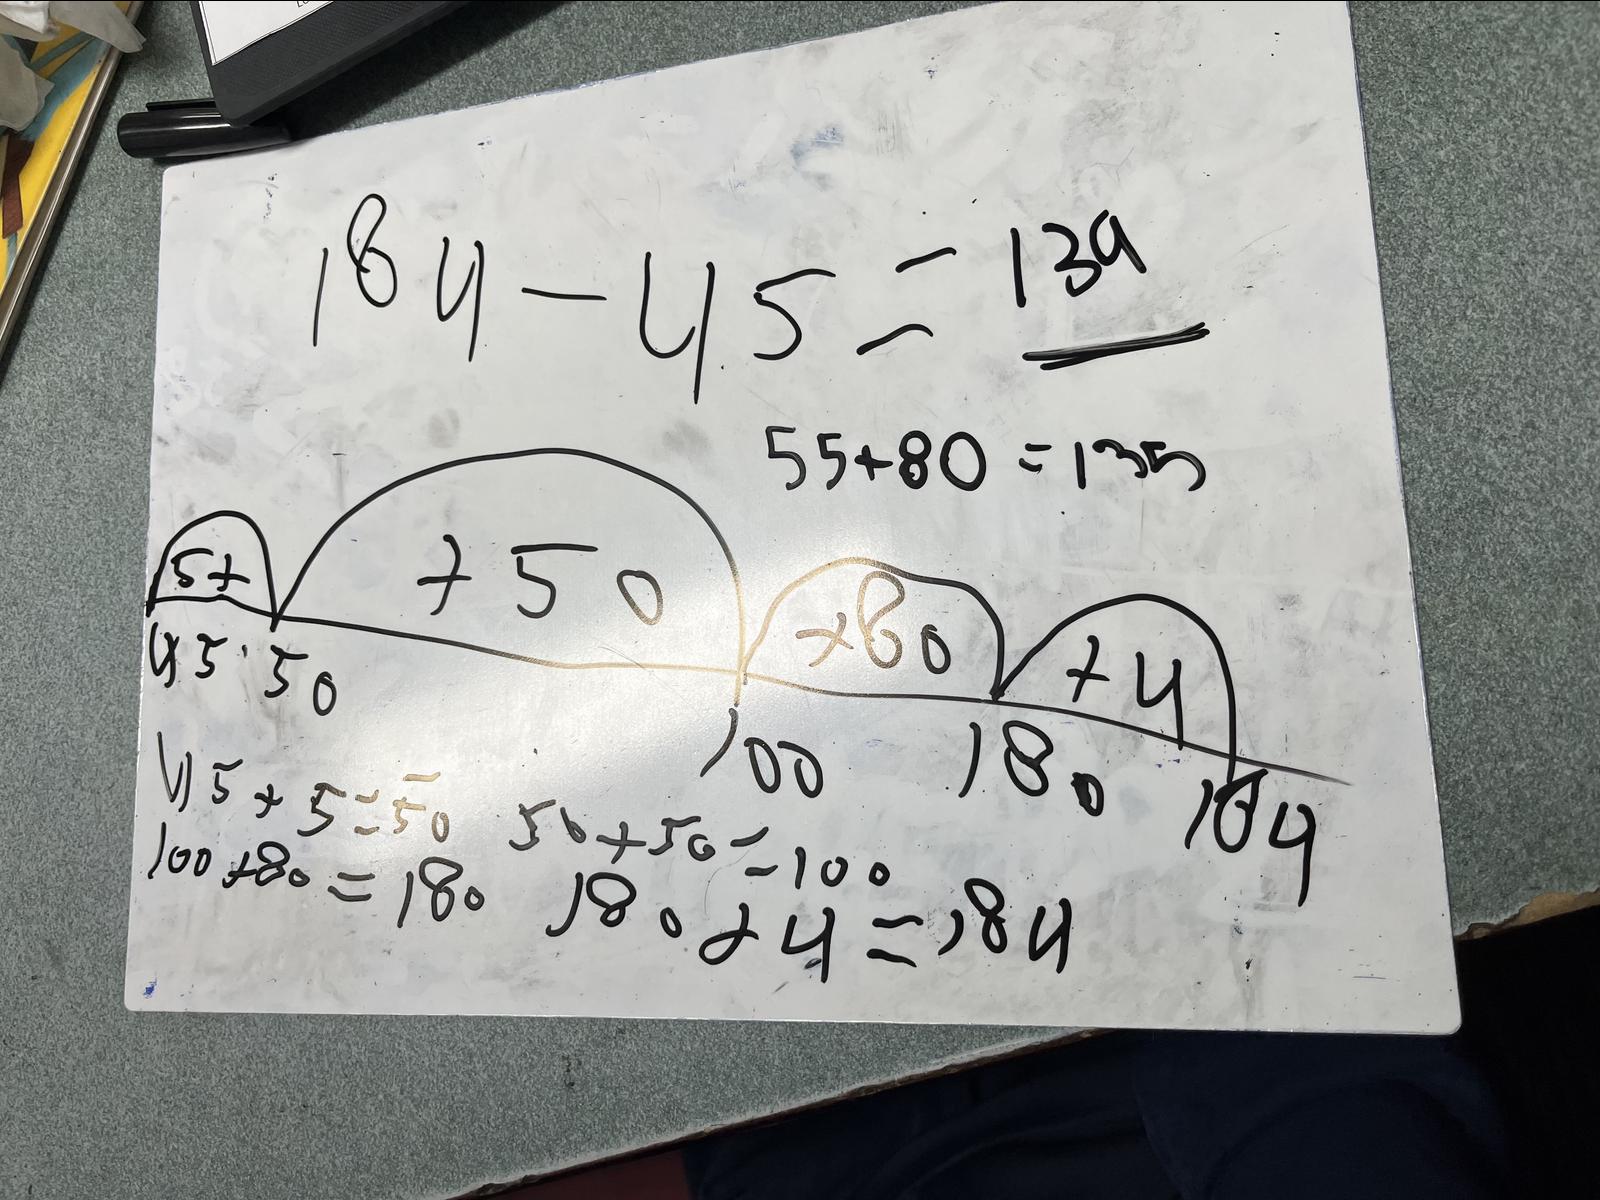 184 - 45 = 139
55+80 = 135
5+ +50 +80 +4
45 50 100 180 184
45 + 5 = 50 50 + 50 = 100
100 + 80 = 180 180 + 4 = 184